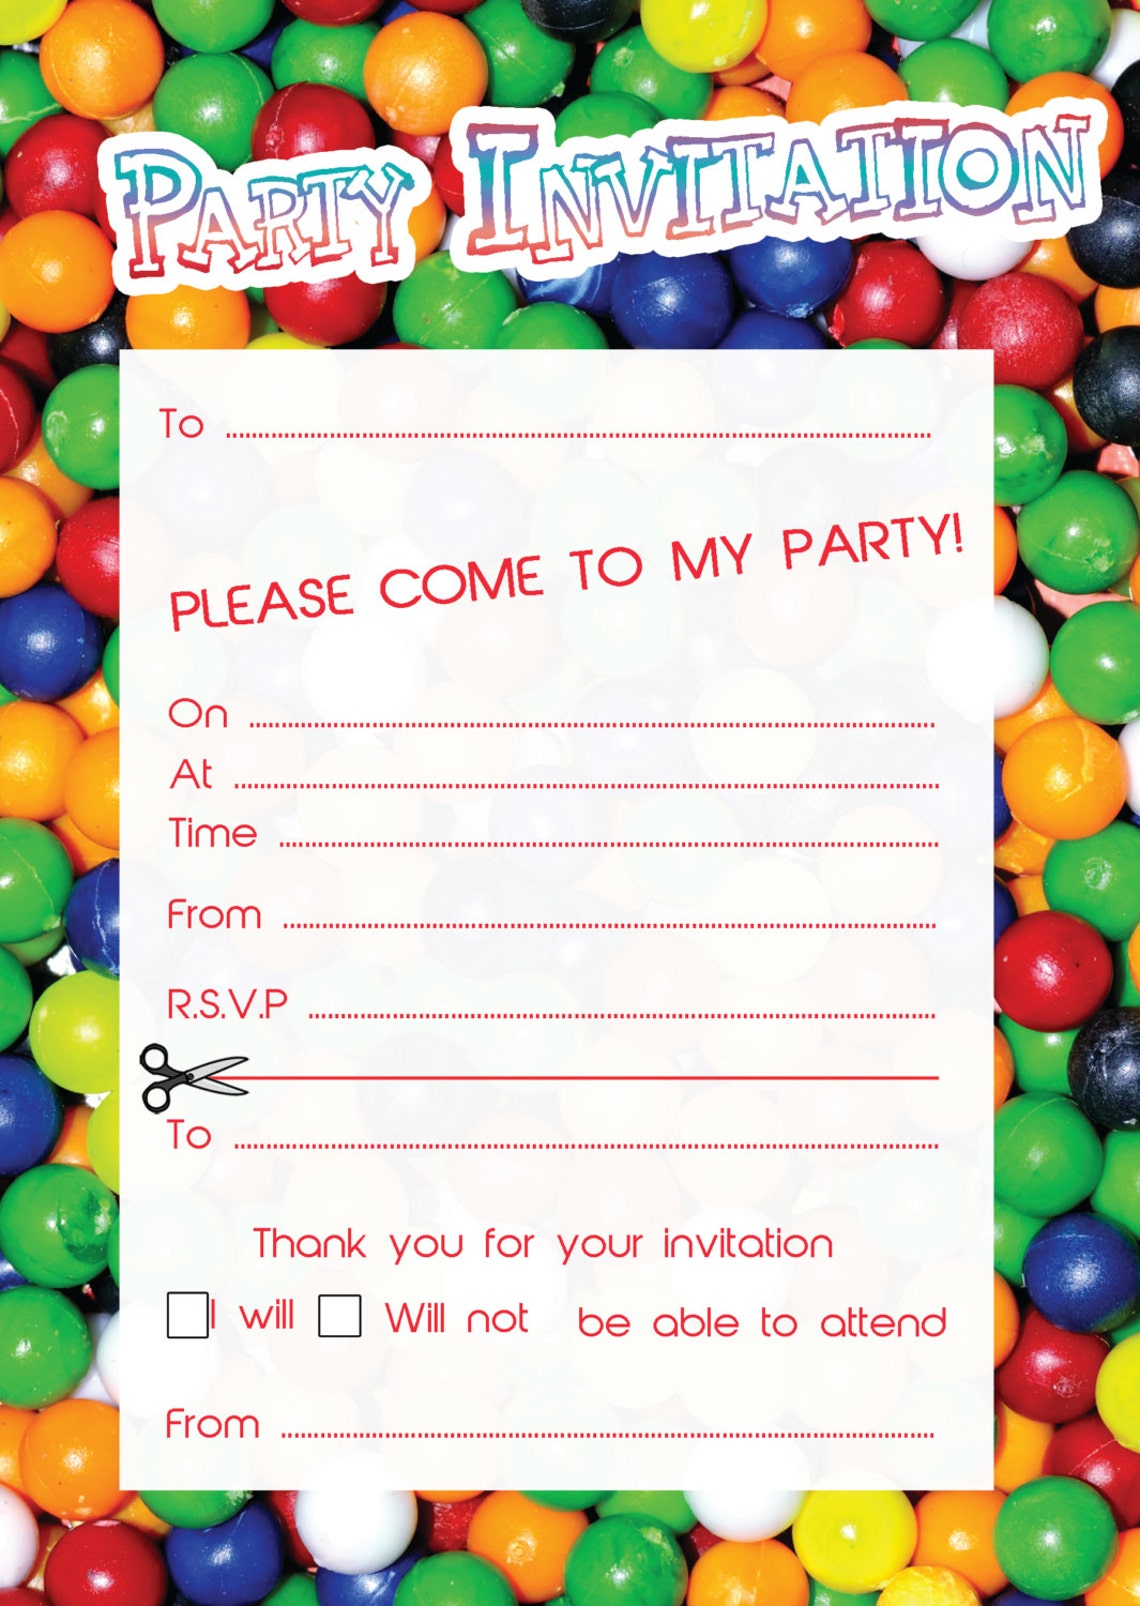 Party Invitation
To ..........
PLEASE COME TO MY PARTY!
On ..........
At ..........
Time ..........
From ..........
R.S.V.P ..........
To ..........
Thank you for your invitation
I will Will not be able to attend
From ..........